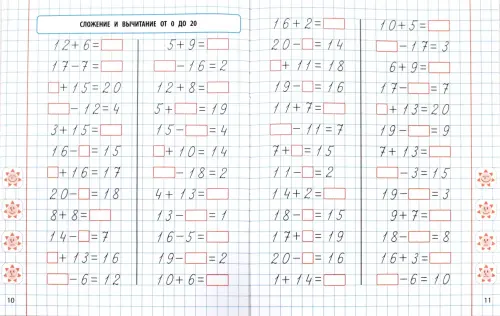 СЛОЖЕНИЕ И ВЫЧИТАНИЕ ОТ 0 ДО 20
12+6=□ 5+9=□
17-7=□ □-16=2
□+15=20 12+8=□
□-12=4 5+□=19
3+15=□ 15-□=4
16-□=15 □+10=14
□+16=17 □-18=2
20-□=18 4+13=□
8+8=□ 13-□=1
14-□=7 16-5=□
□+13=16 19-□=2
□-6=12 10+6=□
10
16+2=□ 10+5=□
20-□=14 □-17=3
□+11=18 6+9=□
19-□=16 17-□=7
11+7=□ □+13=20
□-11=7 19-□=9
7+□=15 7+13=□
11-□=2 □-3=15
14+2=□ 19-□=3
18-□=15 9+7=□
17+□=19 18-□=8
20-□=16 16+3=□
1+14=□ □-6=10
11